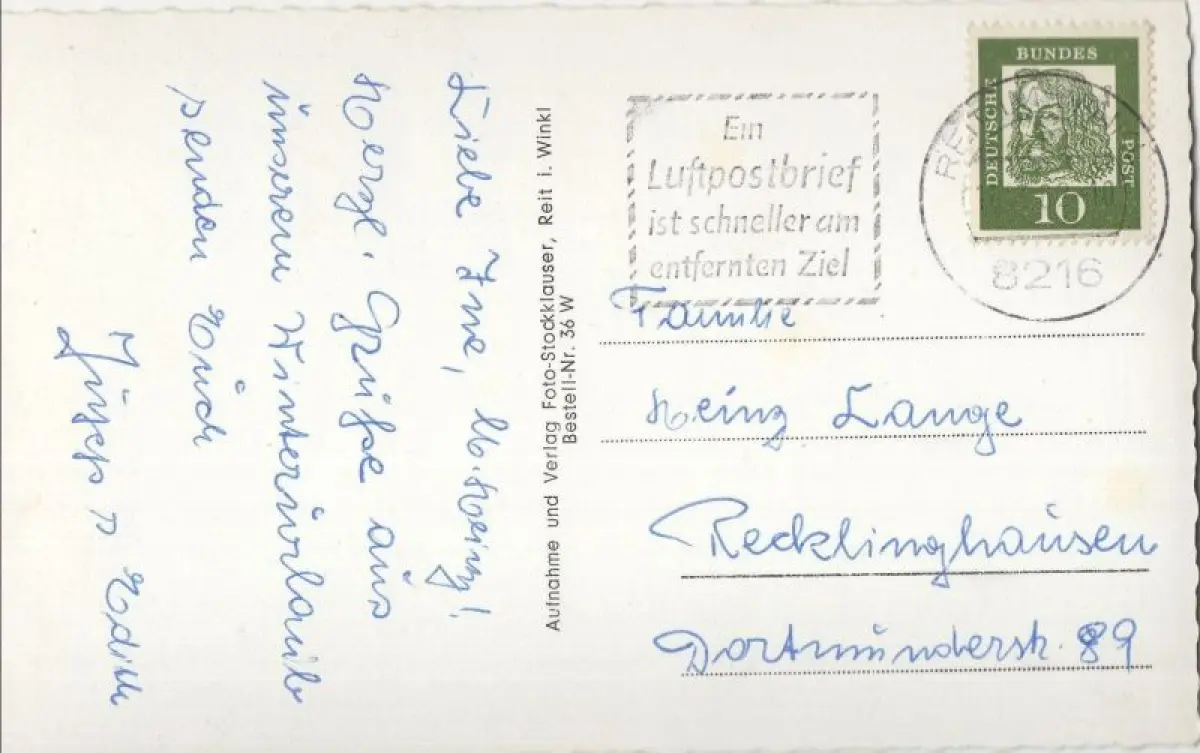 Liebe Inne, lb. Heinz!
Herzl. Grüße aus
unserem Winterurlaub
senden Euch
Edith
Aufnahme und Verlag Foto-Stockklauser, Reit i. Winkl
Bestell-Nr. 36 W
Ein
Luftpostbrief
ist schneller am
entfernten Ziel
DEUTSCHE
BUNDES
POST
10
REIT
8216
Familie
Heinz Lange
Recklinghausen
Dortmunderstr. 89